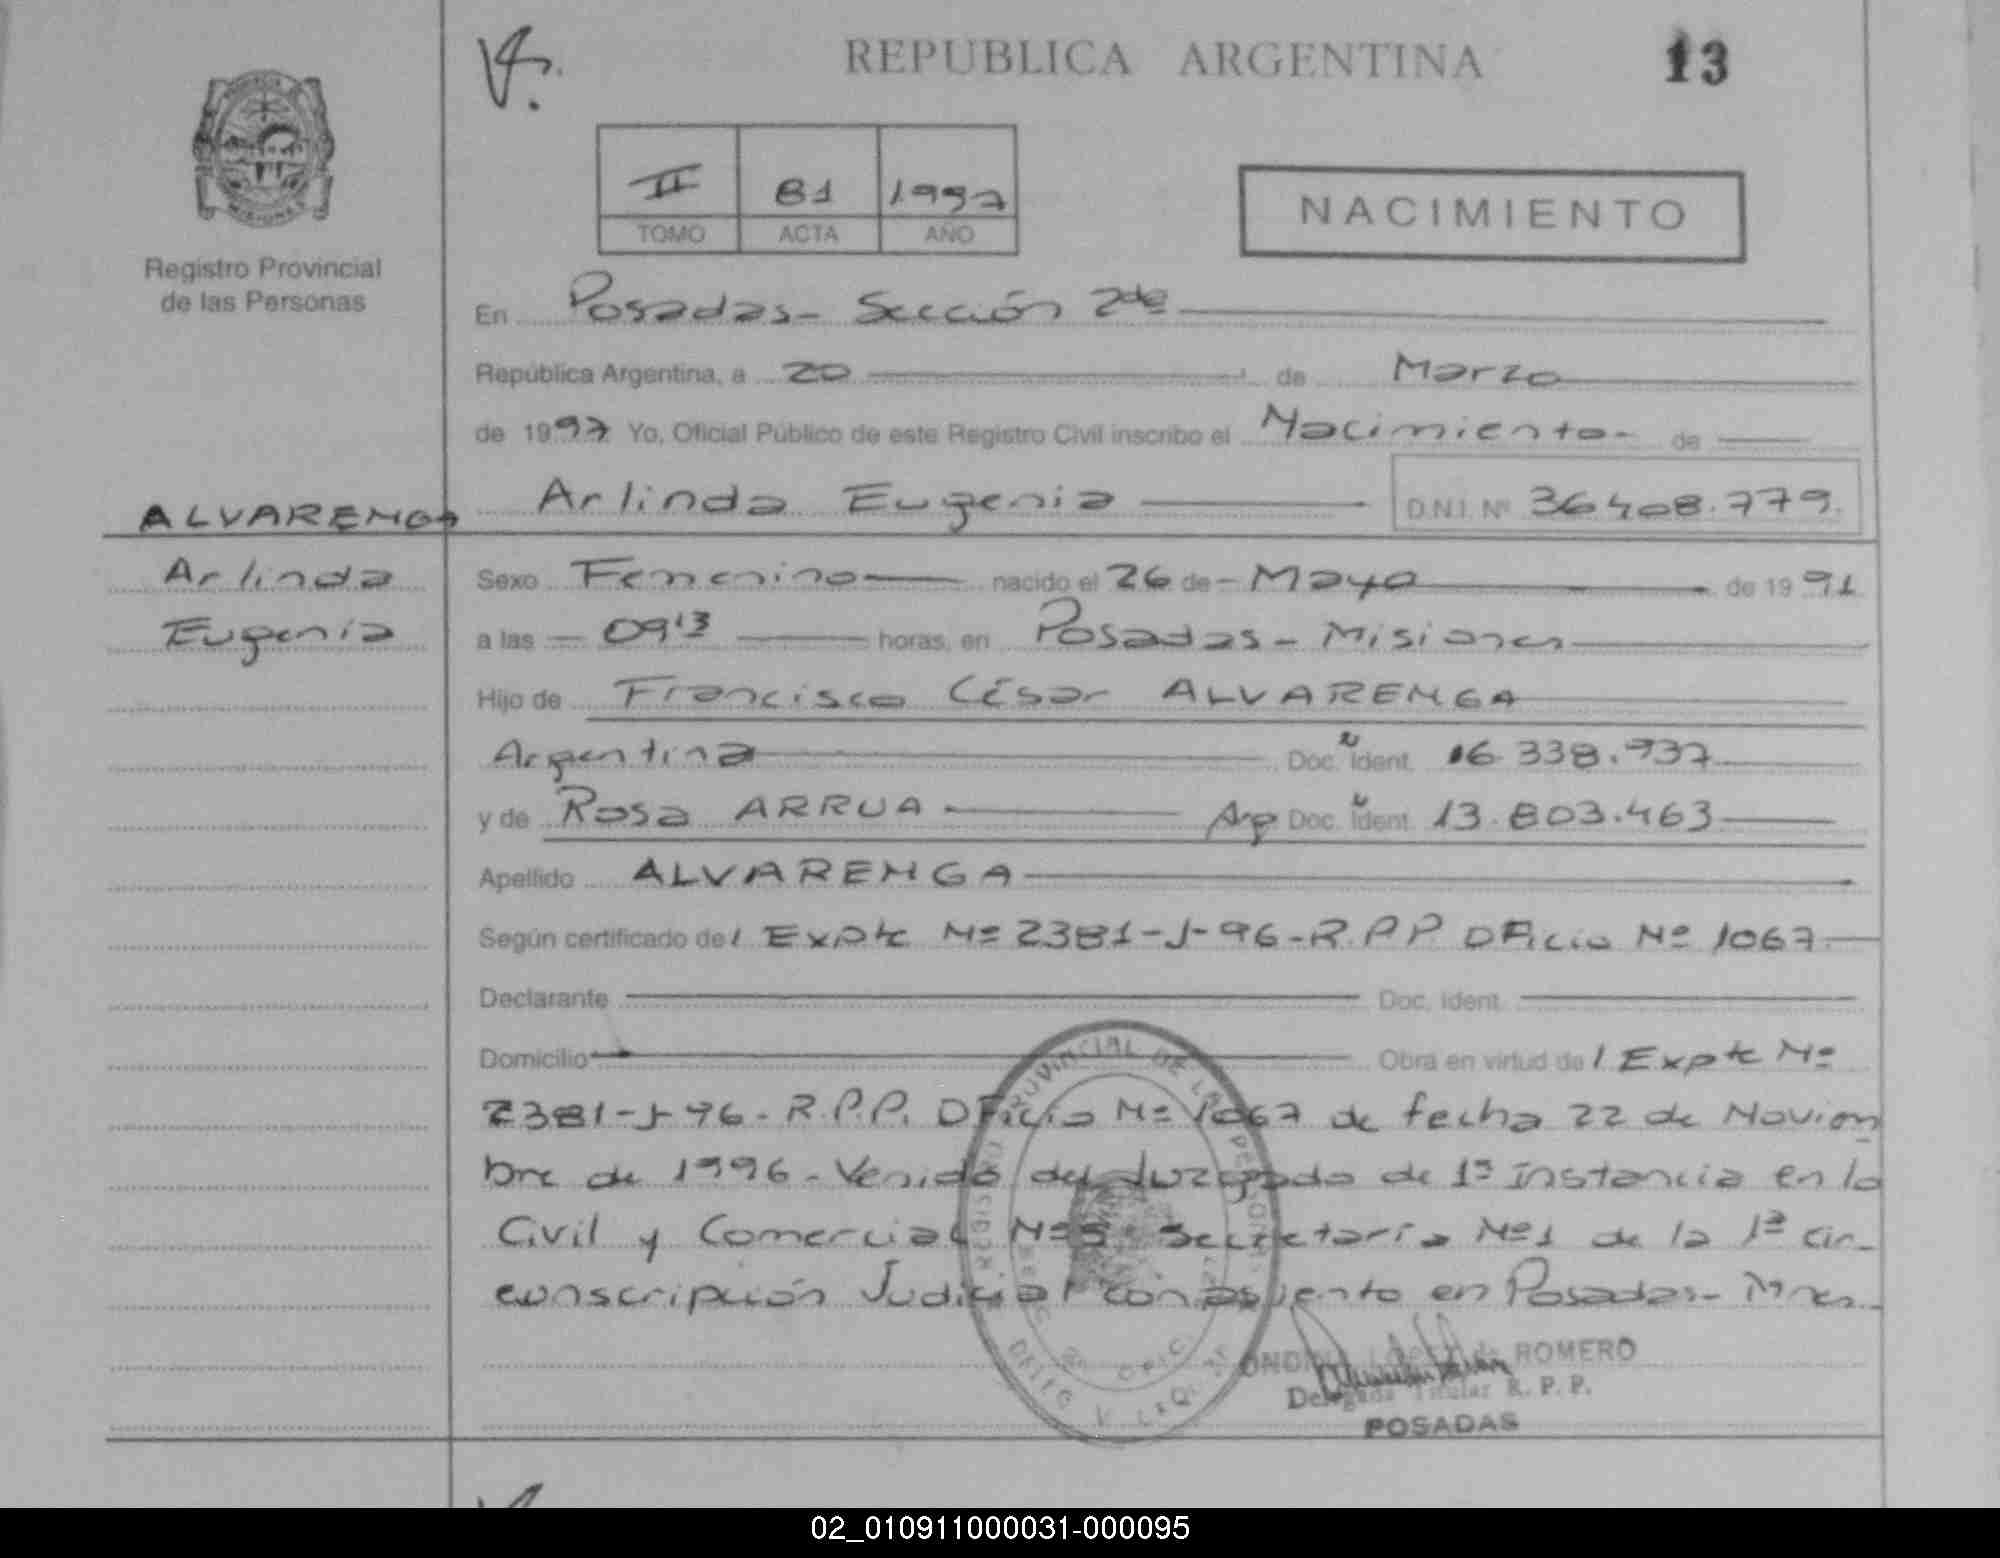 REPUBLICA ARGENTINA
13
PROVINCIA DE
MISIONES
Registro Provincial
de las Personas
II 81 1997
TOMO ACTA AÑO
NACIMIENTO
En Posadas - Sección 2da
República Argentina, a 20 de Marzo
de 1997 Yo, Oficial Público de este Registro Civil inscribo el Nacimiento - de
ALVARENGA
Arlinda Eugenia D.N.I. Nº 36.408.779.
Arlinda
Eugenia
Sexo Femenino nacido el 26 de - Mayo de 1991
a las 09'13 horas, en Posadas - Misiones
Hijo de Francisco César ALVARENGA
Argentina Doc. Ident. 16.338.937
y de Rosa ARRUA Arg Doc. Ident. 13.803.463
Apellido ALVARENGA
Según certificado del Expte Nº 2381-J-96-R.P.P. Oficio Nº 1067
Declarante Doc. Ident.
Domicilio Obra en virtud del Expte Nº
2381-J-96-R.P.P. Oficio Nº 1067 de fecha 22 de Noviem
bre de 1996 - Venido del Juzgado de 1ª Instancia en lo
Civil y Comercial Nº 5 Secretaría Nº 1 de la 1ª Cir-
cunscripción Judicial con asiento en Posadas - Mnes -
REGISTRO PROVINCIAL DE LAS PERSONAS
ROMERO
Delegada Titular R. P. P.
POSADAS
02_010911000031-000095